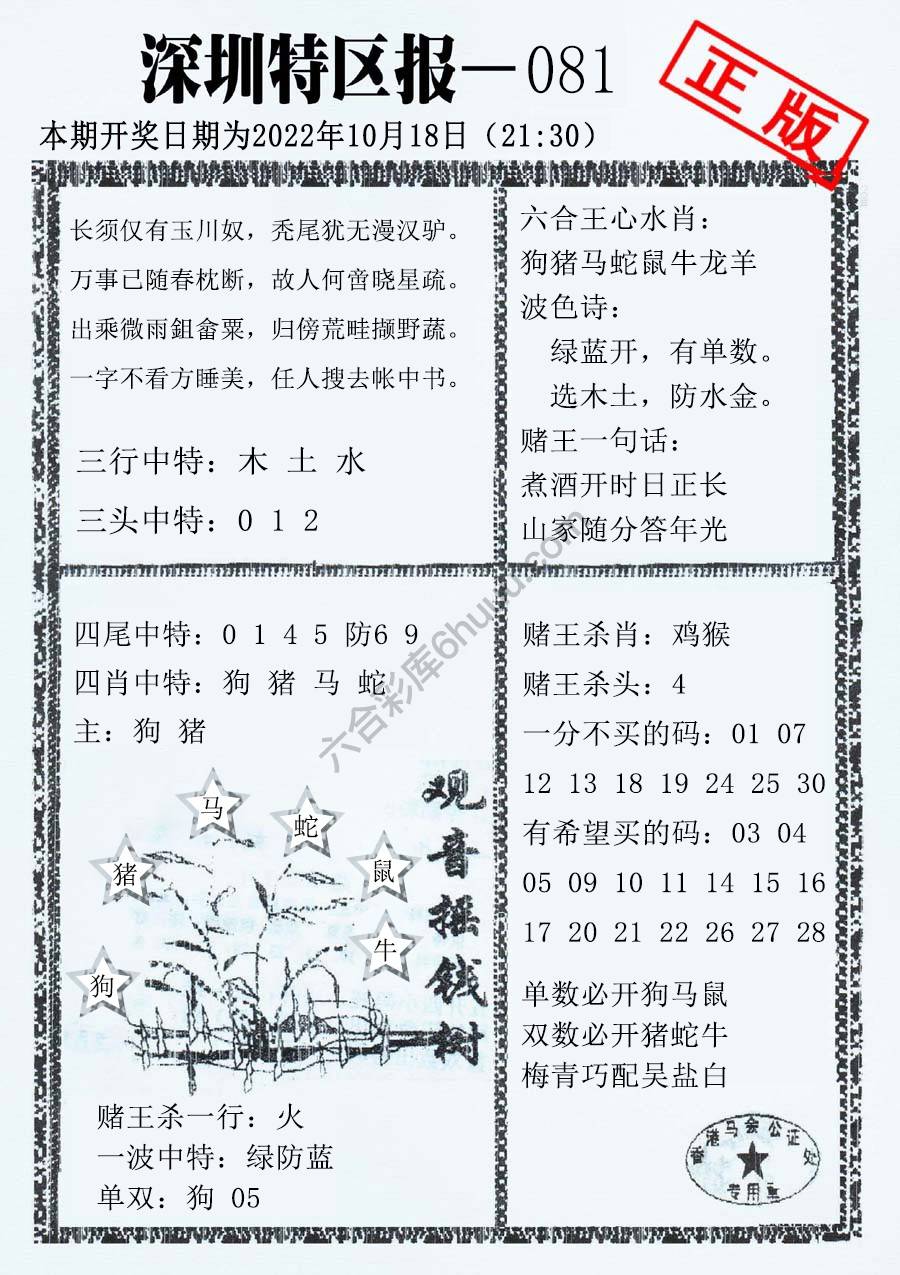 深圳特区报—081
正版
本期开奖日期为2022年10月18日（21:30）
长须仅有玉川奴，秃尾犹无漫汉驴。
万事已随春枕断，故人何啻晓星疏。
出乘微雨鉏畬粟，归傍荒畦撷野蔬。
一字不看方睡美，任人搜去帐中书。
三行中特：木 土 水
三头中特：0 1 2
六合王心水肖：
狗猪马蛇鼠牛龙羊
波色诗：
绿蓝开，有单数。
选木土，防水金。
赌王一句话：
煮酒开时日正长
山家随分答年光
四尾中特：0 1 4 5 防6 9
四肖中特：狗 猪 马 蛇
主：狗 猪
马
蛇
猪
鼠
牛
狗
观音摇钱树
赌王杀一行：火
一波中特：绿防蓝
单双：狗 05
赌王杀肖：鸡猴
赌王杀头：4
一分不买的码：01 07
12 13 18 19 24 25 30
有希望买的码：03 04
05 09 10 11 14 15 16
17 20 21 22 26 27 28
单数必开狗马鼠
双数必开猪蛇牛
梅青巧配吴盐白
香港马会公证处
专用章
六合彩库6huuu.com